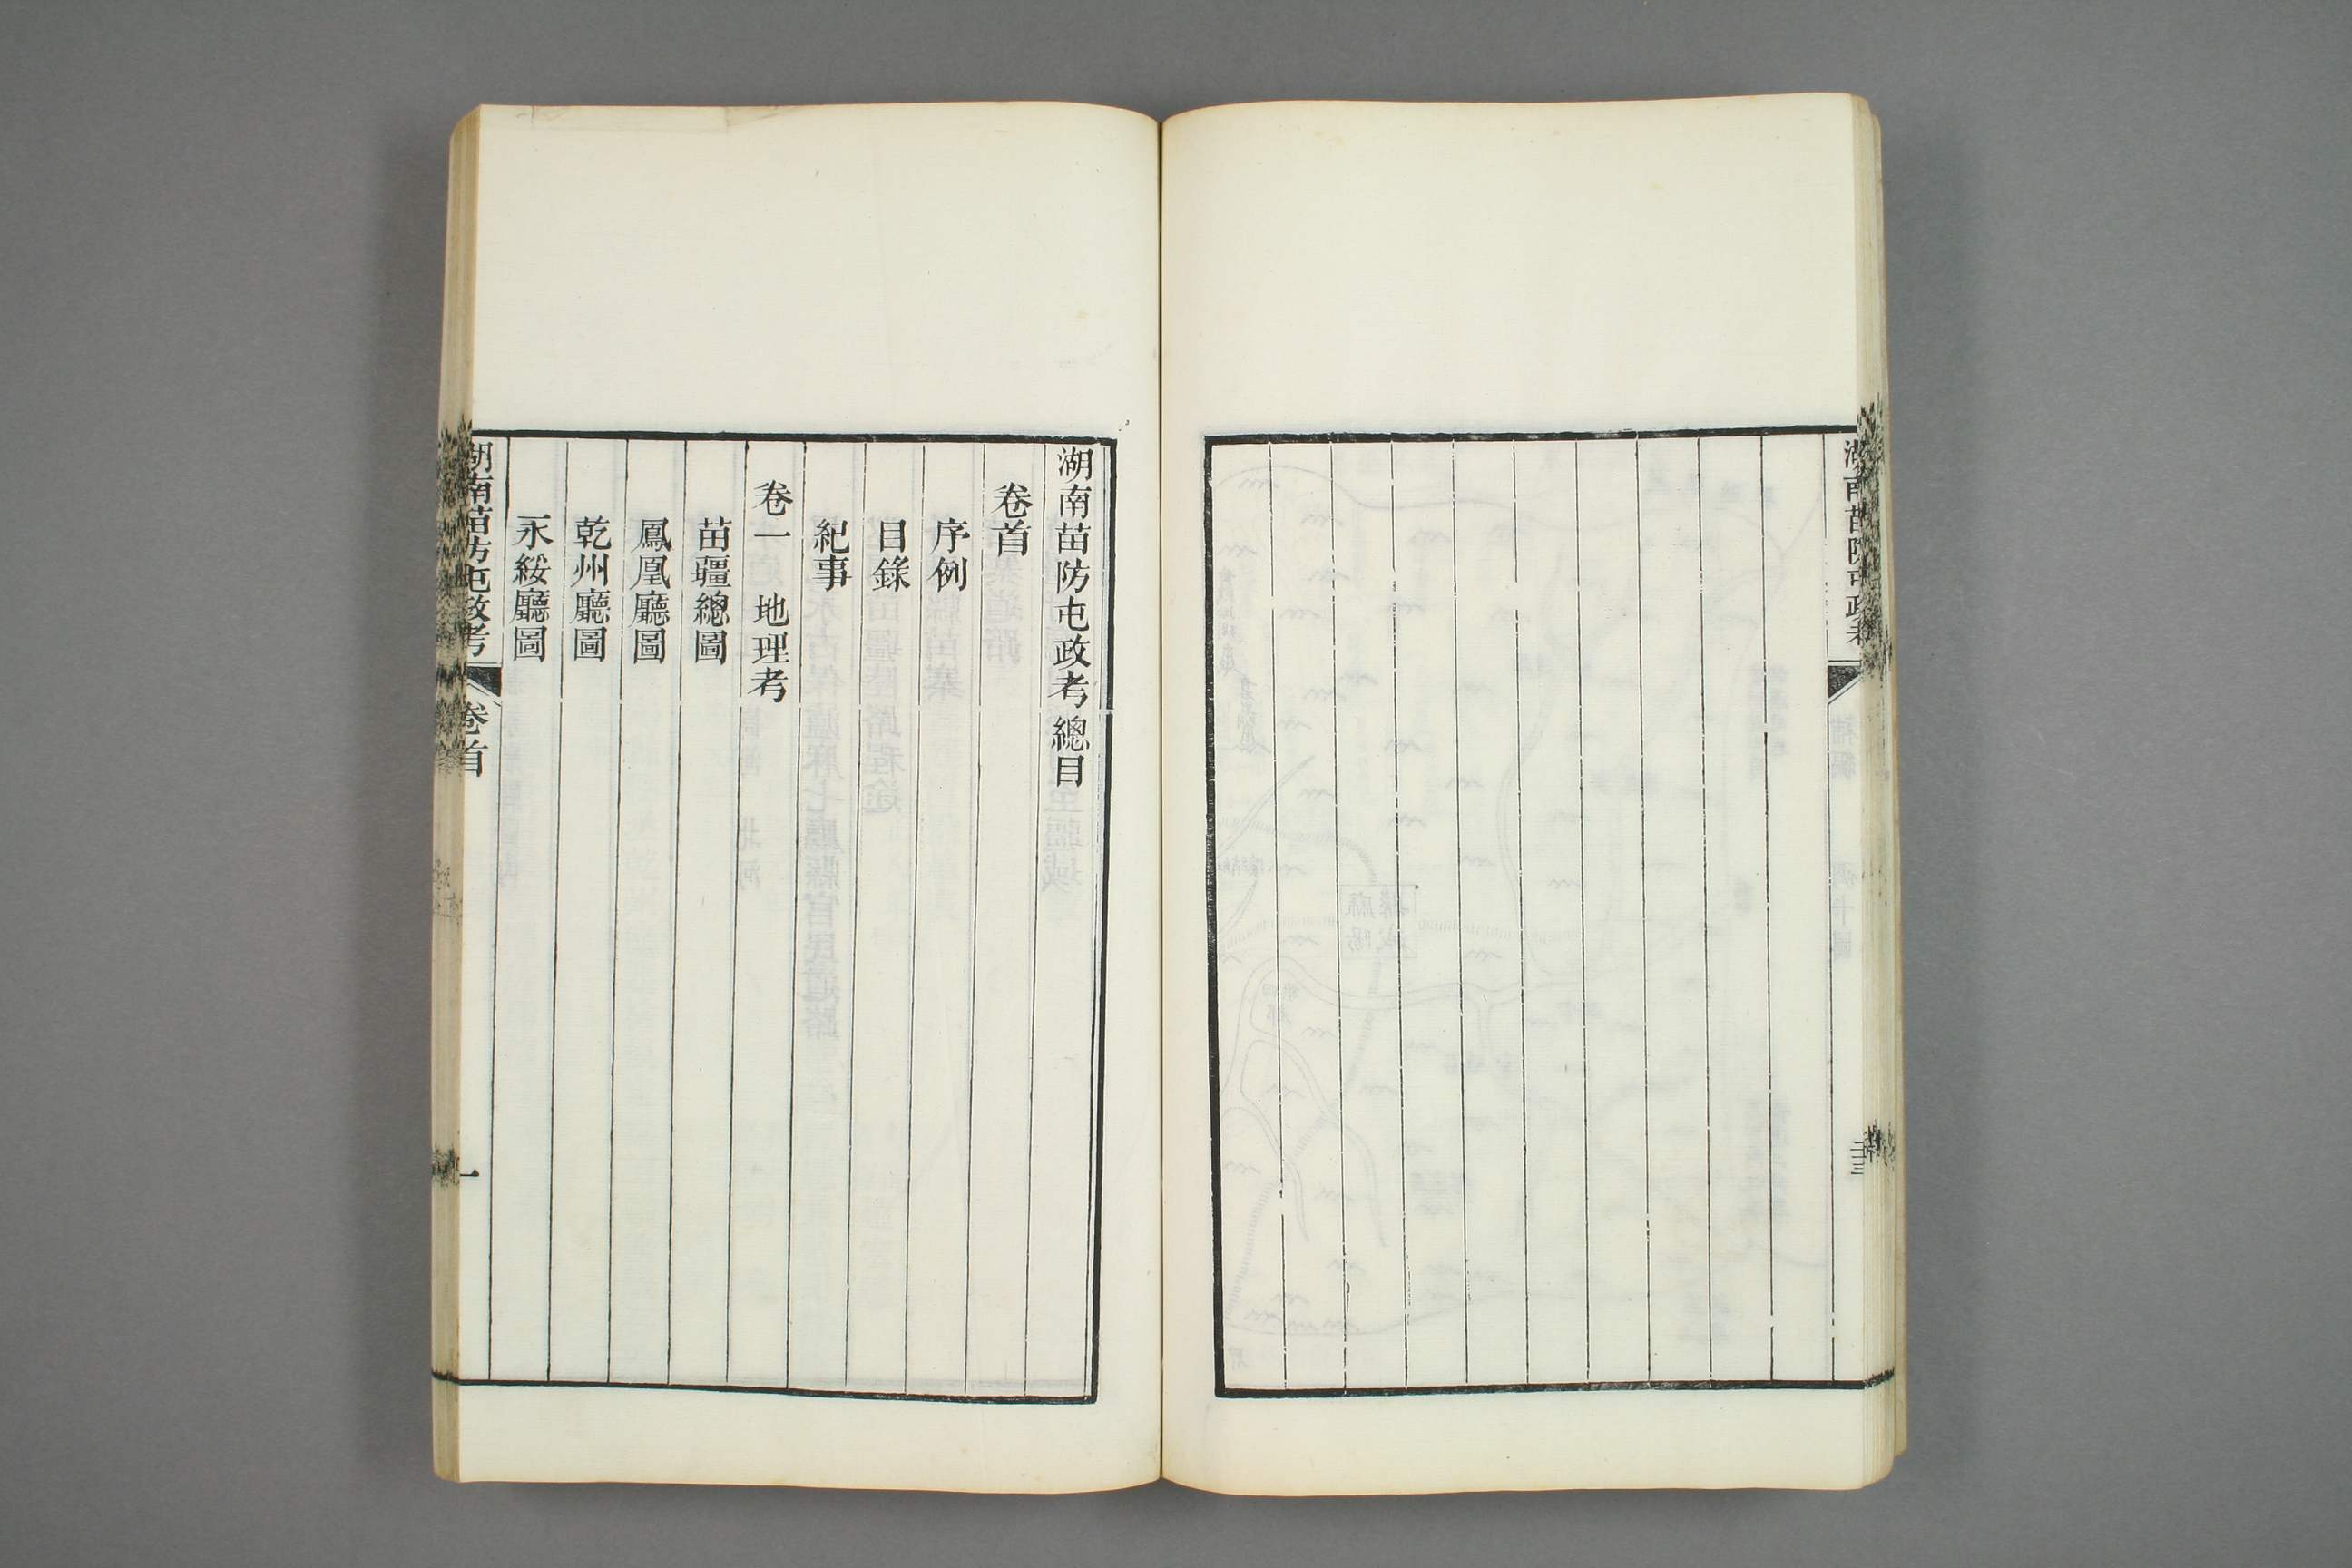 湖南苗防屯政考
湖南苗防屯政考總目
卷首
序例
目錄
紀事
卷一 地理考
苗疆總圖
鳳凰廳圖
乾州廳圖
永綏廳圖
湖南苗防屯政考 卷首 一